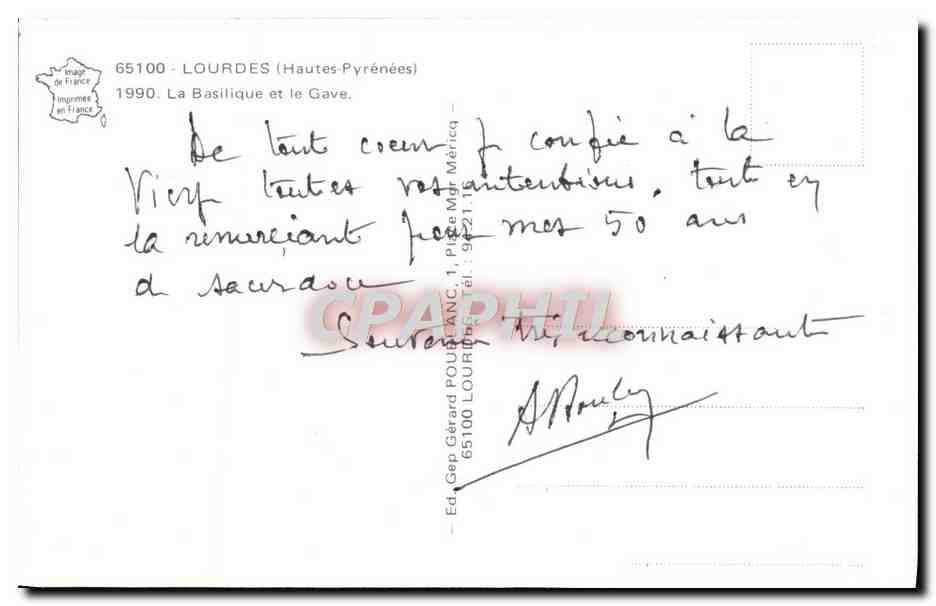 Image
de France
Imprimée
en France
65100 - LOURDES (Hautes-Pyrénées)
1990. La Basilique et le Gave.
De tout coeur je confie à la
Vierge toutes vos intentions, tout en
la remerciant pour mes 50 ans
de sacerdoce
Souvenir très reconnaissant
Ed. Gep Gérard POUBLANC, 1, Place Mgr Méricq
65100 LOURDES Tél. :
CPAPHIL